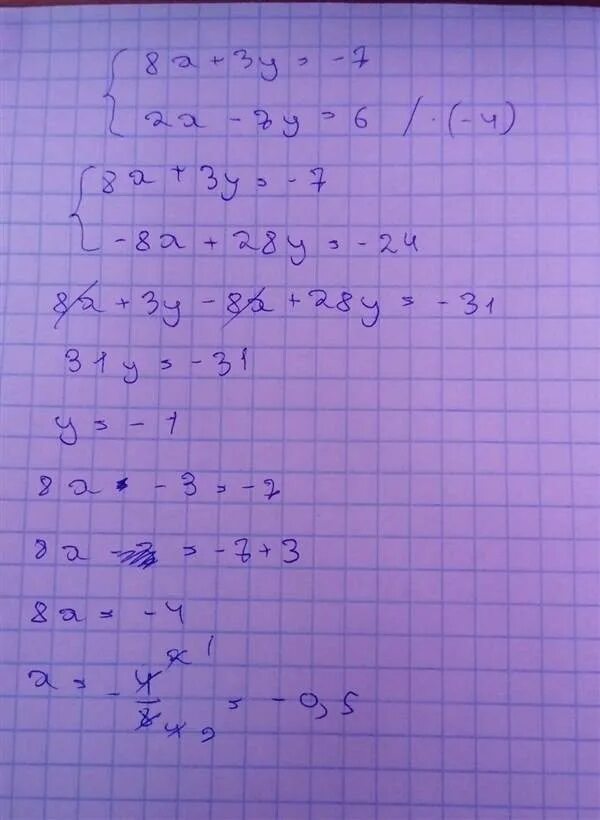 8x + 3y = -7
2x - 7y = 6 / · (-4)
8x + 3y = -7
-8x + 28y = -24
8x + 3y - 8x + 28y = -31
31y = -31
y = -1
8x - 3 = -7
8x = -7 + 3
8x = -4
x = -4/8 = -0,5